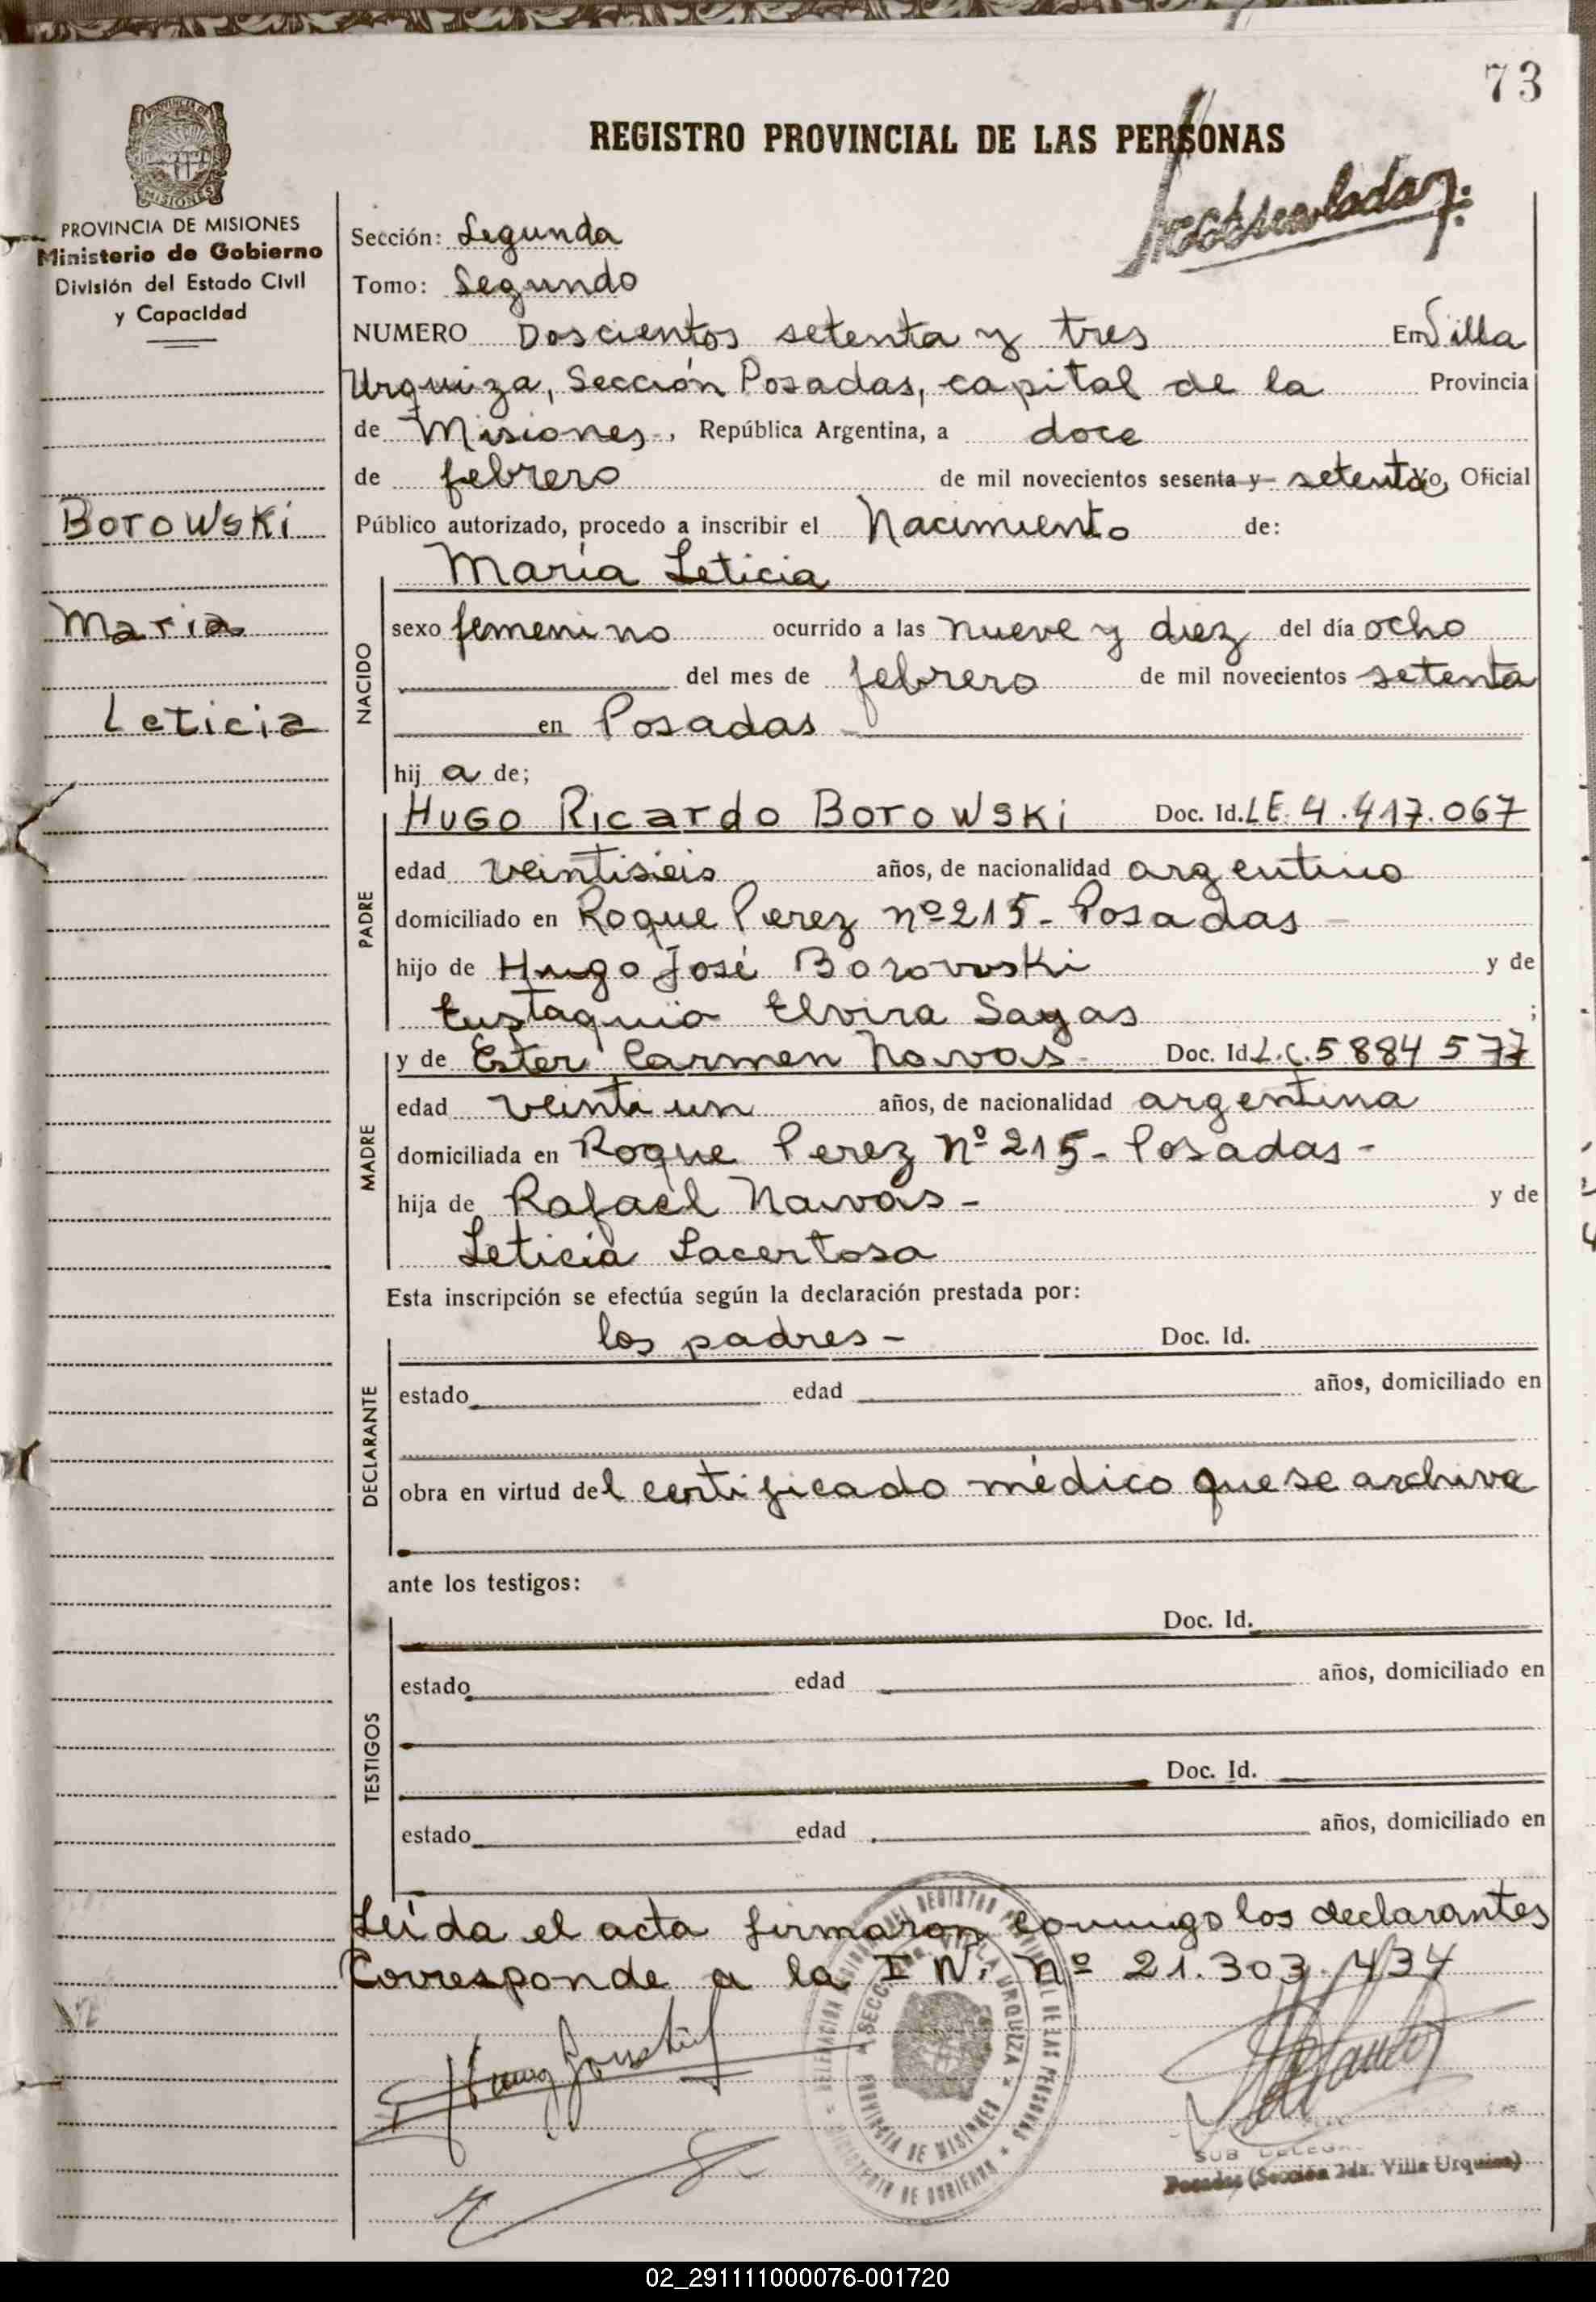 73
REGISTRO PROVINCIAL DE LAS PERSONAS
PROVINCIA DE MISIONES
Ministerio de Gobierno
División del Estado Civil
y Capacidad
Borowski
Maria
Leticia
Sección: Segunda
Tomo: Segundo
NUMERO Doscientos setenta y tres En Villa
Urquiza, Sección Posadas, capital de la Provincia
de Misiones, República Argentina, a doce
de febrero de mil novecientos sesenta y setenta yo, Oficial
Público autorizado, procedo a inscribir el Nacimiento de:
María Leticia
NACIDO
sexo femenino ocurrido a las nueve y diez del día ocho
del mes de febrero de mil novecientos setenta
en Posadas
hij a de;
PADRE
Hugo Ricardo Borowski Doc. Id. L.E. 4.417.067
edad veintiseis años, de nacionalidad argentino
domiciliado en Roque Perez nº 215- Posadas -
hijo de Hugo José Borowski y de
Eustaquia Elvira Sayas ;
MADRE
y de Ester Carmen Navas - Doc. Id L.C. 5884577
edad veinti un años, de nacionalidad argentina
domiciliada en Roque Perez Nº 215- Posadas -
hija de Rafael Navas - y de
Leticia Lacertosa
Esta inscripción se efectúa según la declaración prestada por:
DECLARANTE
los padres - Doc. Id.
estado edad años, domiciliado en
obra en virtud del certificado médico que se archiva
ante los testigos:
TESTIGOS
Doc. Id.
estado edad años, domiciliado en
Doc. Id.
estado edad años, domiciliado en
Leída el acta firmaron conmigo los declarantes
Corresponde a la I.N. Nº 21.303.434
SECC. VILLA URQUIZA
PROVINCIA DE MISIONES
DELEGACION DEL REGISTRO PROVINCIAL DE LAS PERSONAS
MINISTERIO DE GOBIERNO
SUB
Posadas (Sección 2da. Villa Urquiza)
02_291111000076-001720